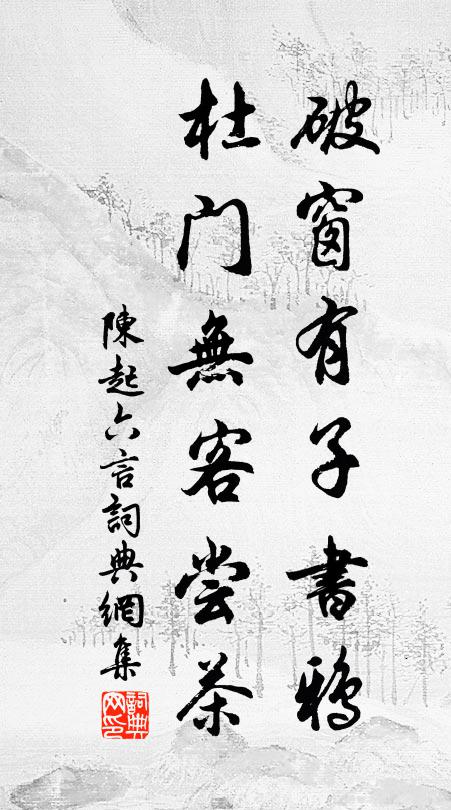 破窗有子書鴉
杜門無客尝茶
陳起六言詞典網集
詞典网印